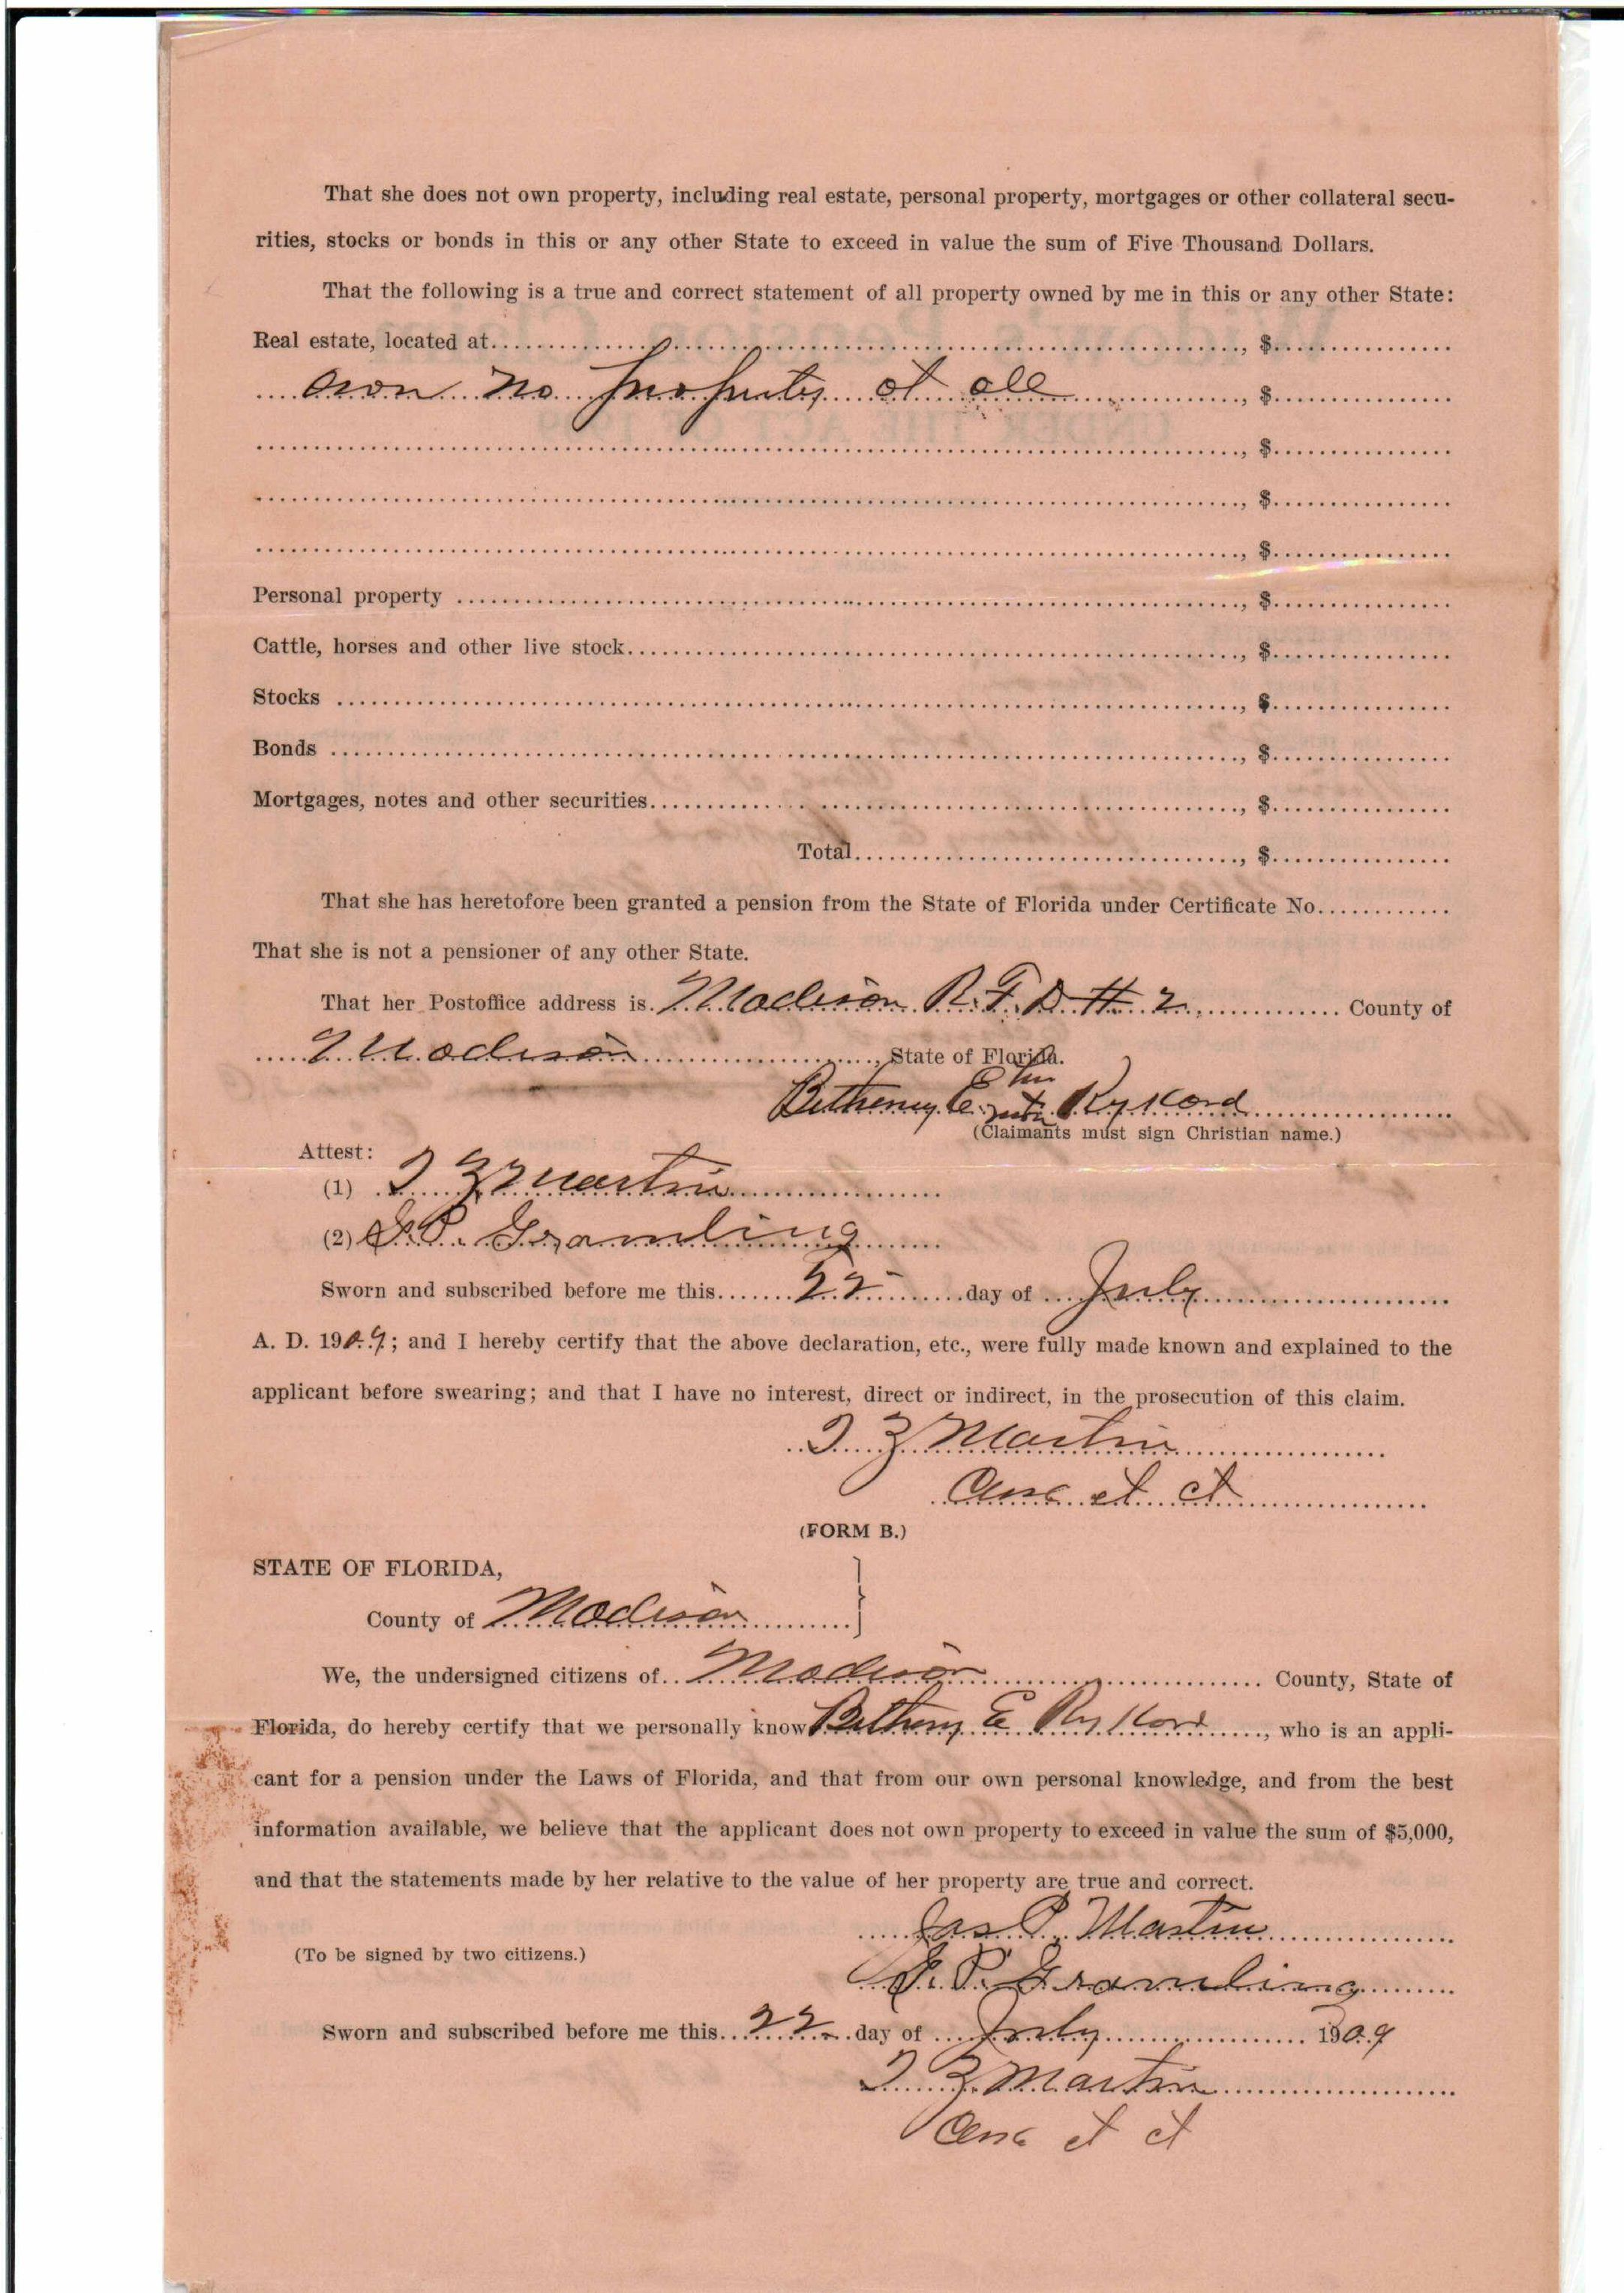 That she does not own property, including real estate, personal property, mortgages or other collateral secu-
rities, stocks or bonds in this or any other State to exceed in value the sum of Five Thousand Dollars.
That the following is a true and correct statement of all property owned by me in this or any other State:
Real estate, located at................, $................
own no property at all................, $................
................, $................
................, $................
................, $................
Personal property ................, $................
Cattle, horses and other live stock................, $................
Stocks ................, $................
Bonds ................, $................
Mortgages, notes and other securities................, $................
Total................, $................
That she has heretofore been granted a pension from the State of Florida under Certificate No.............
That she is not a pensioner of any other State.
That her Postoffice address is Madison R. F. D # 2, County of
Madison, State of Florida.
Betheny E Rykord
(Claimants must sign Christian name.)
Attest:
(1) T Z Martin
(2) S. P. Gramling
Sworn and subscribed before me this 22 day of July
A. D. 1909; and I hereby certify that the above declaration, etc., were fully made known and explained to the
applicant before swearing; and that I have no interest, direct or indirect, in the prosecution of this claim.
T Z Martin
(FORM B.)
STATE OF FLORIDA,
County of Madison }
We, the undersigned citizens of Madison County, State of
Florida, do hereby certify that we personally know Betheny E Rykord, who is an appli-
cant for a pension under the Laws of Florida, and that from our own personal knowledge, and from the best
information available, we believe that the applicant does not own property to exceed in value the sum of $5,000,
and that the statements made by her relative to the value of her property are true and correct.
Jas P. Martin
(To be signed by two citizens.)
S. P. Gramling
Sworn and subscribed before me this 22 day of July 1909
T Z Martin